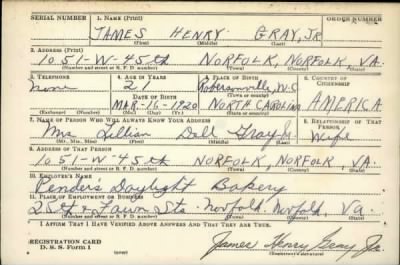 SERIAL NUMBER 1. NAME (Print) ORDER NUMBER
JAMES HENRY GRAY, JR
(First) (Middle) (Last)
2. ADDRESS (Print)
1051-W-45th NORFOLK, NORFOLK, VA.
(Number and street or R. F. D. number) (Town) (County) (State)
3. TELEPHONE 4. AGE IN YEARS 5. PLACE OF BIRTH 6. COUNTRY OF CITIZENSHIP
None 21 Robersonville, N.C
(Town or county)
DATE OF BIRTH
MAR-16-1920 NORTH CAROLINA AMERICA
(Exchange) (Number) (Mo.) (Day) (Yr.) (State or country)
7. NAME OF PERSON WHO WILL ALWAYS KNOW YOUR ADDRESS 8. RELATIONSHIP OF THAT PERSON
Mrs Lillian Dell Gray Jr. Wife
(Mr., Mrs., Miss) (First) (Middle) (Last)
9. ADDRESS OF THAT PERSON
1051-W-45th NORFOLK, NORFOLK, VA.
(Number and street or R. F. D. number) (Town) (County) (State)
10. EMPLOYER'S NAME
Penders Daylight Bakery
11. PLACE OF EMPLOYMENT OR BUSINESS
25th + Fawn Sts. Norfolk. Norfolk, Va.
(Number and street or R. F. D. number) (Town) (County) (State)
I AFFIRM THAT I HAVE VERIFIED ABOVE ANSWERS AND THAT THEY ARE TRUE.
REGISTRATION CARD
D. S. S. Form 1 (over)
James Henry Gray Jr.
(Registrant's signature)